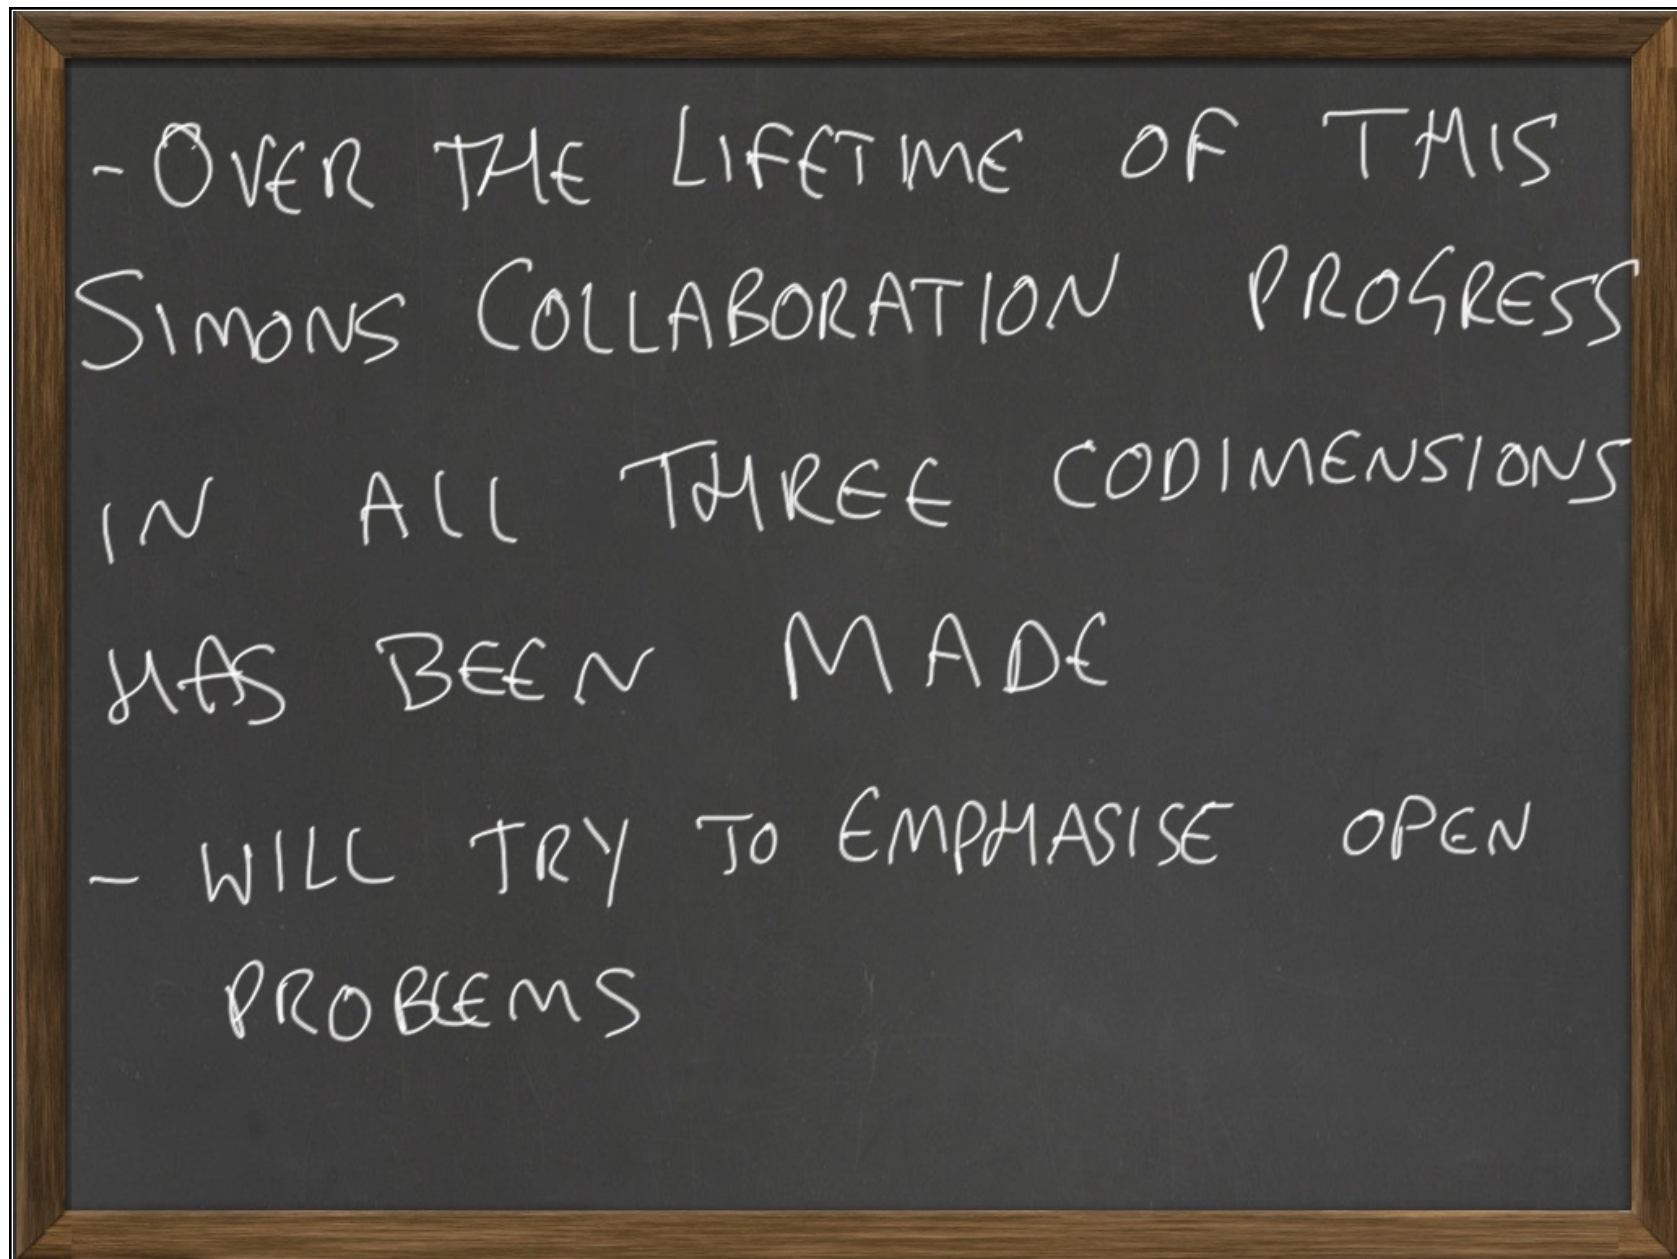 - OVER THE LIFETIME OF THIS
SIMONS COLLABORATION PROGRESS
IN ALL THREE CODIMENSIONS
HAS BEEN MADE
- WILL TRY TO EMPHASISE OPEN
PROBLEMS